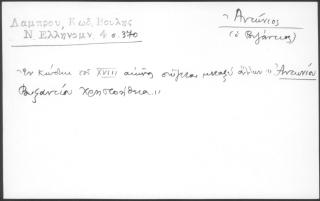 Λάμπρου, Κώδ. Βουλῆς
Ν. Ἑλληνομν. 4 σ. 370
Ἀντώνιος
(ὁ Βυζάντιος)
Ἐν κώδικι τοῦ XVIII αἰῶνος σῴζεται μεταξὺ ἄλλων "Ἀντωνίου
Βυζαντίου Χρηστοήθεια"